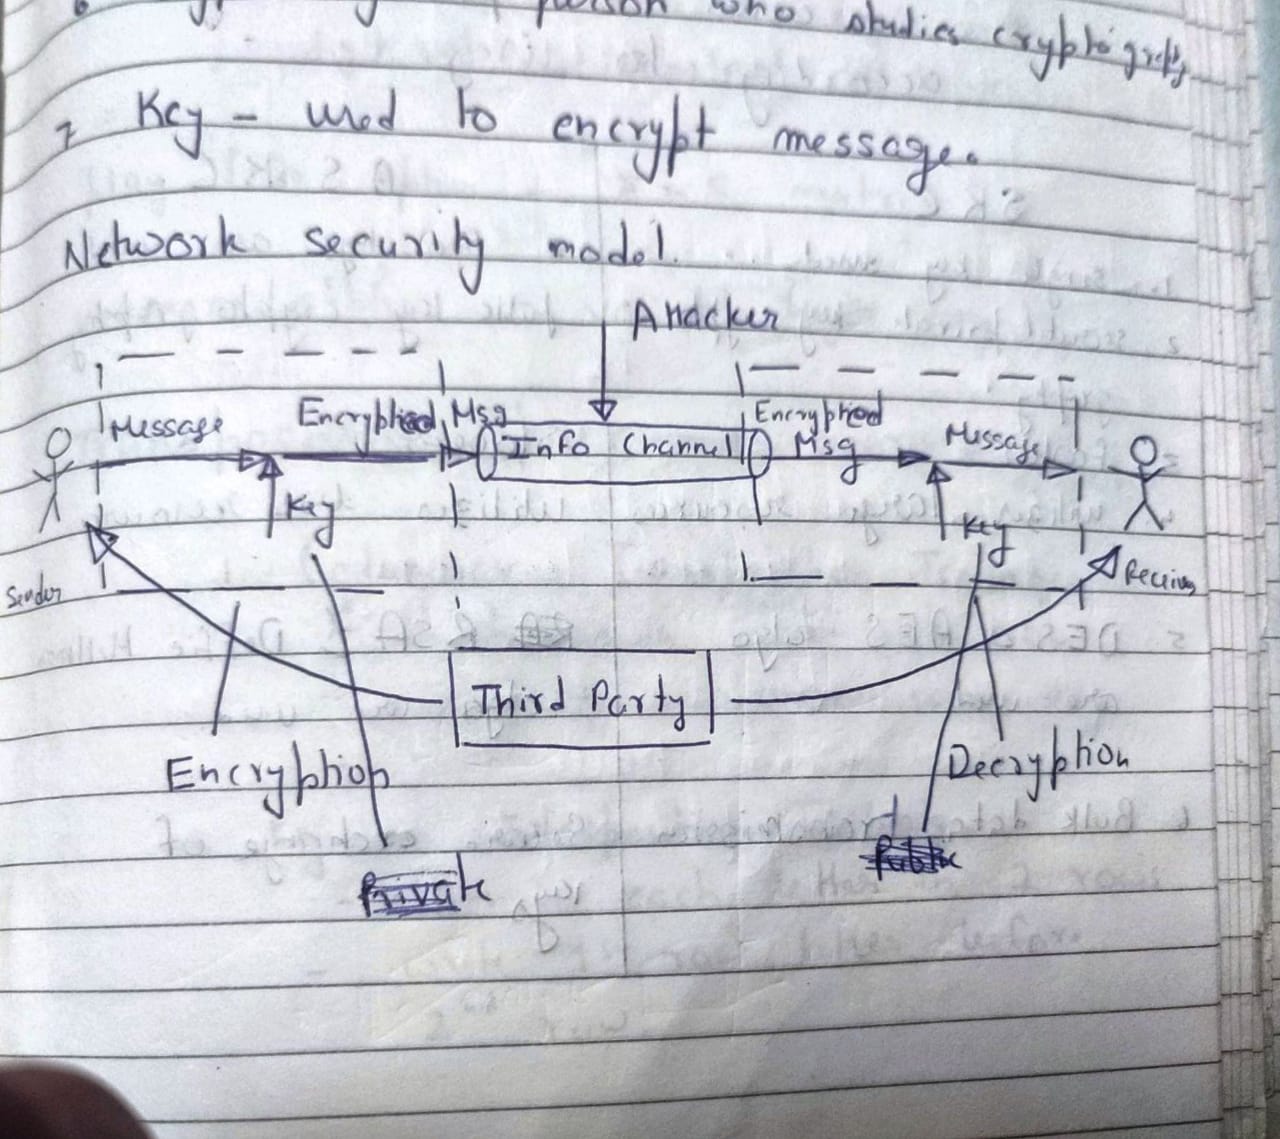 person who studies cryptography
7 Key - used to encrypt message.
Network security model.
Attacker
Message Encryptied Msg Info Channel Encryptied Msg Message
Key Key
Sender Receiver
Third Party
Encryption Decryption
Private Public